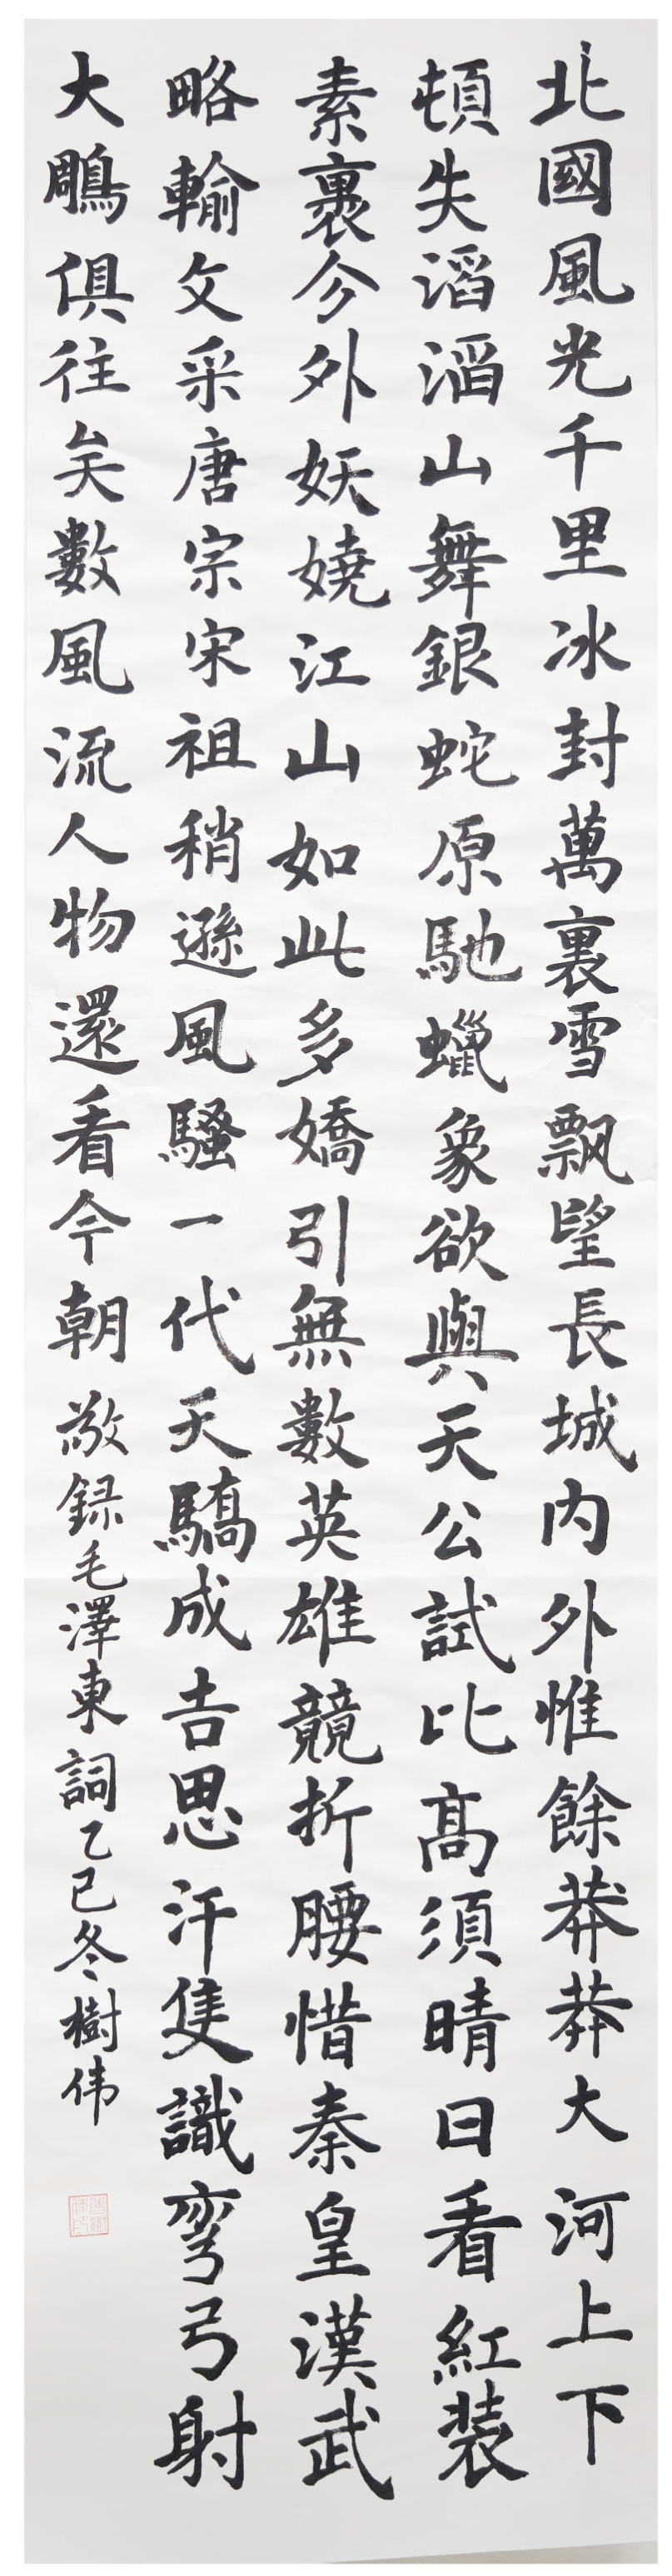 北國風光千里冰封萬裏雪飄望長城内外惟餘莽莽大河上下
頓失滔滔山舞銀蛇原馳蠟象欲與天公試比高須晴日看紅裝
素裹分外妖嬈江山如此多嬌引無數英雄競折腰惜秦皇漢武
略輸文采唐宗宋祖稍遜風騷一代天驕成吉思汗隻識彎弓射
大鵰俱往矣數風流人物還看今朝敬録毛澤東詞乙巳冬樹伟